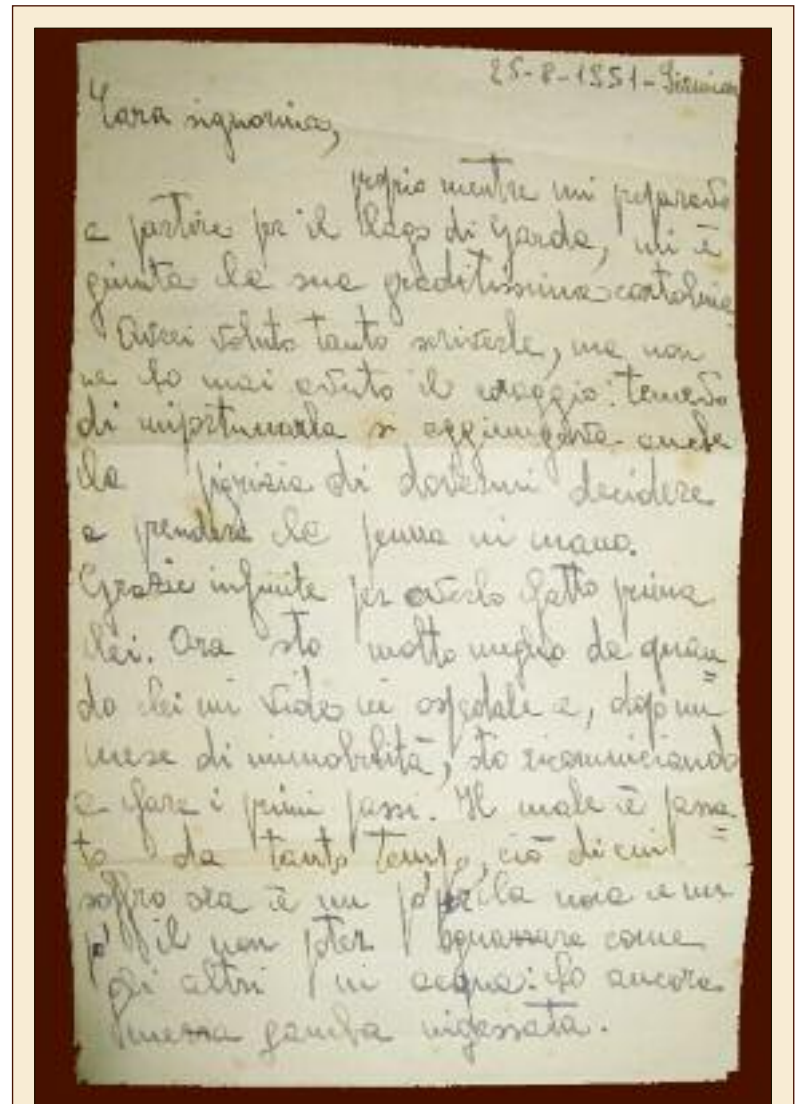 25-8-1951 - Sirmione
Cara signorina,
proprio mentre mi preparavo
a partire per il Lago di Garda, mi è
giunta la sua graditissima cartolina.
Avrei voluto tanto scriverle, ma non
ne ho mai avuto il coraggio: temevo
di importunarla si aggiungeva anche
la pigrizia di dovermi decidere
a prendere la penna in mano.
Grazie infinite per averlo fatto prima
Lei. Ora sto molto meglio da quan=
do Lei mi vide in ospedale e, dopo un
mese di immobilità, sto ricominciando
a fare i primi passi. Il male è passa=
to da tanto tempo, ciò di cui
soffro ora è un pò per la noia e un
pò il non poter sguazzare come
gli altri in acqua: ho ancora
mezza gamba ingessata.